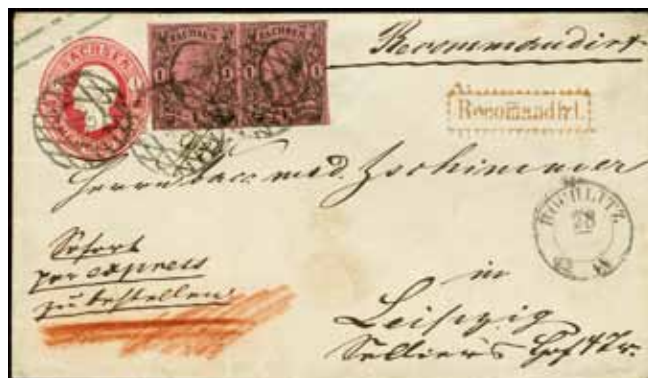 SACHSEN
SACHSEN SACHSEN
1 1 1 1
Recommandirt
Recomandirt.
Herrn Bacc. med. Zschimmer
ROCHLITZ
28
Sofort
per express
zu bestellen
in
Leipzig
Hof 4 Tr.